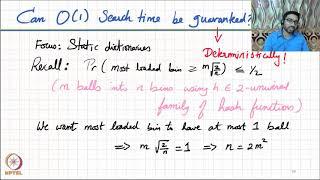 Can O(1) Search time be guaranteed?
Deterministically!
Focus: Static dictionaries
Recall: Pr( most loaded bin ≥ m√(2/n) ) ≤ 1/2
(m balls into n bins using h ∈ 2-universal
family of hash functions)
We want most loaded bin to have at most 1 ball
⇒ m √(2/n) = 1 ⇒ n = 2m²
NPTEL